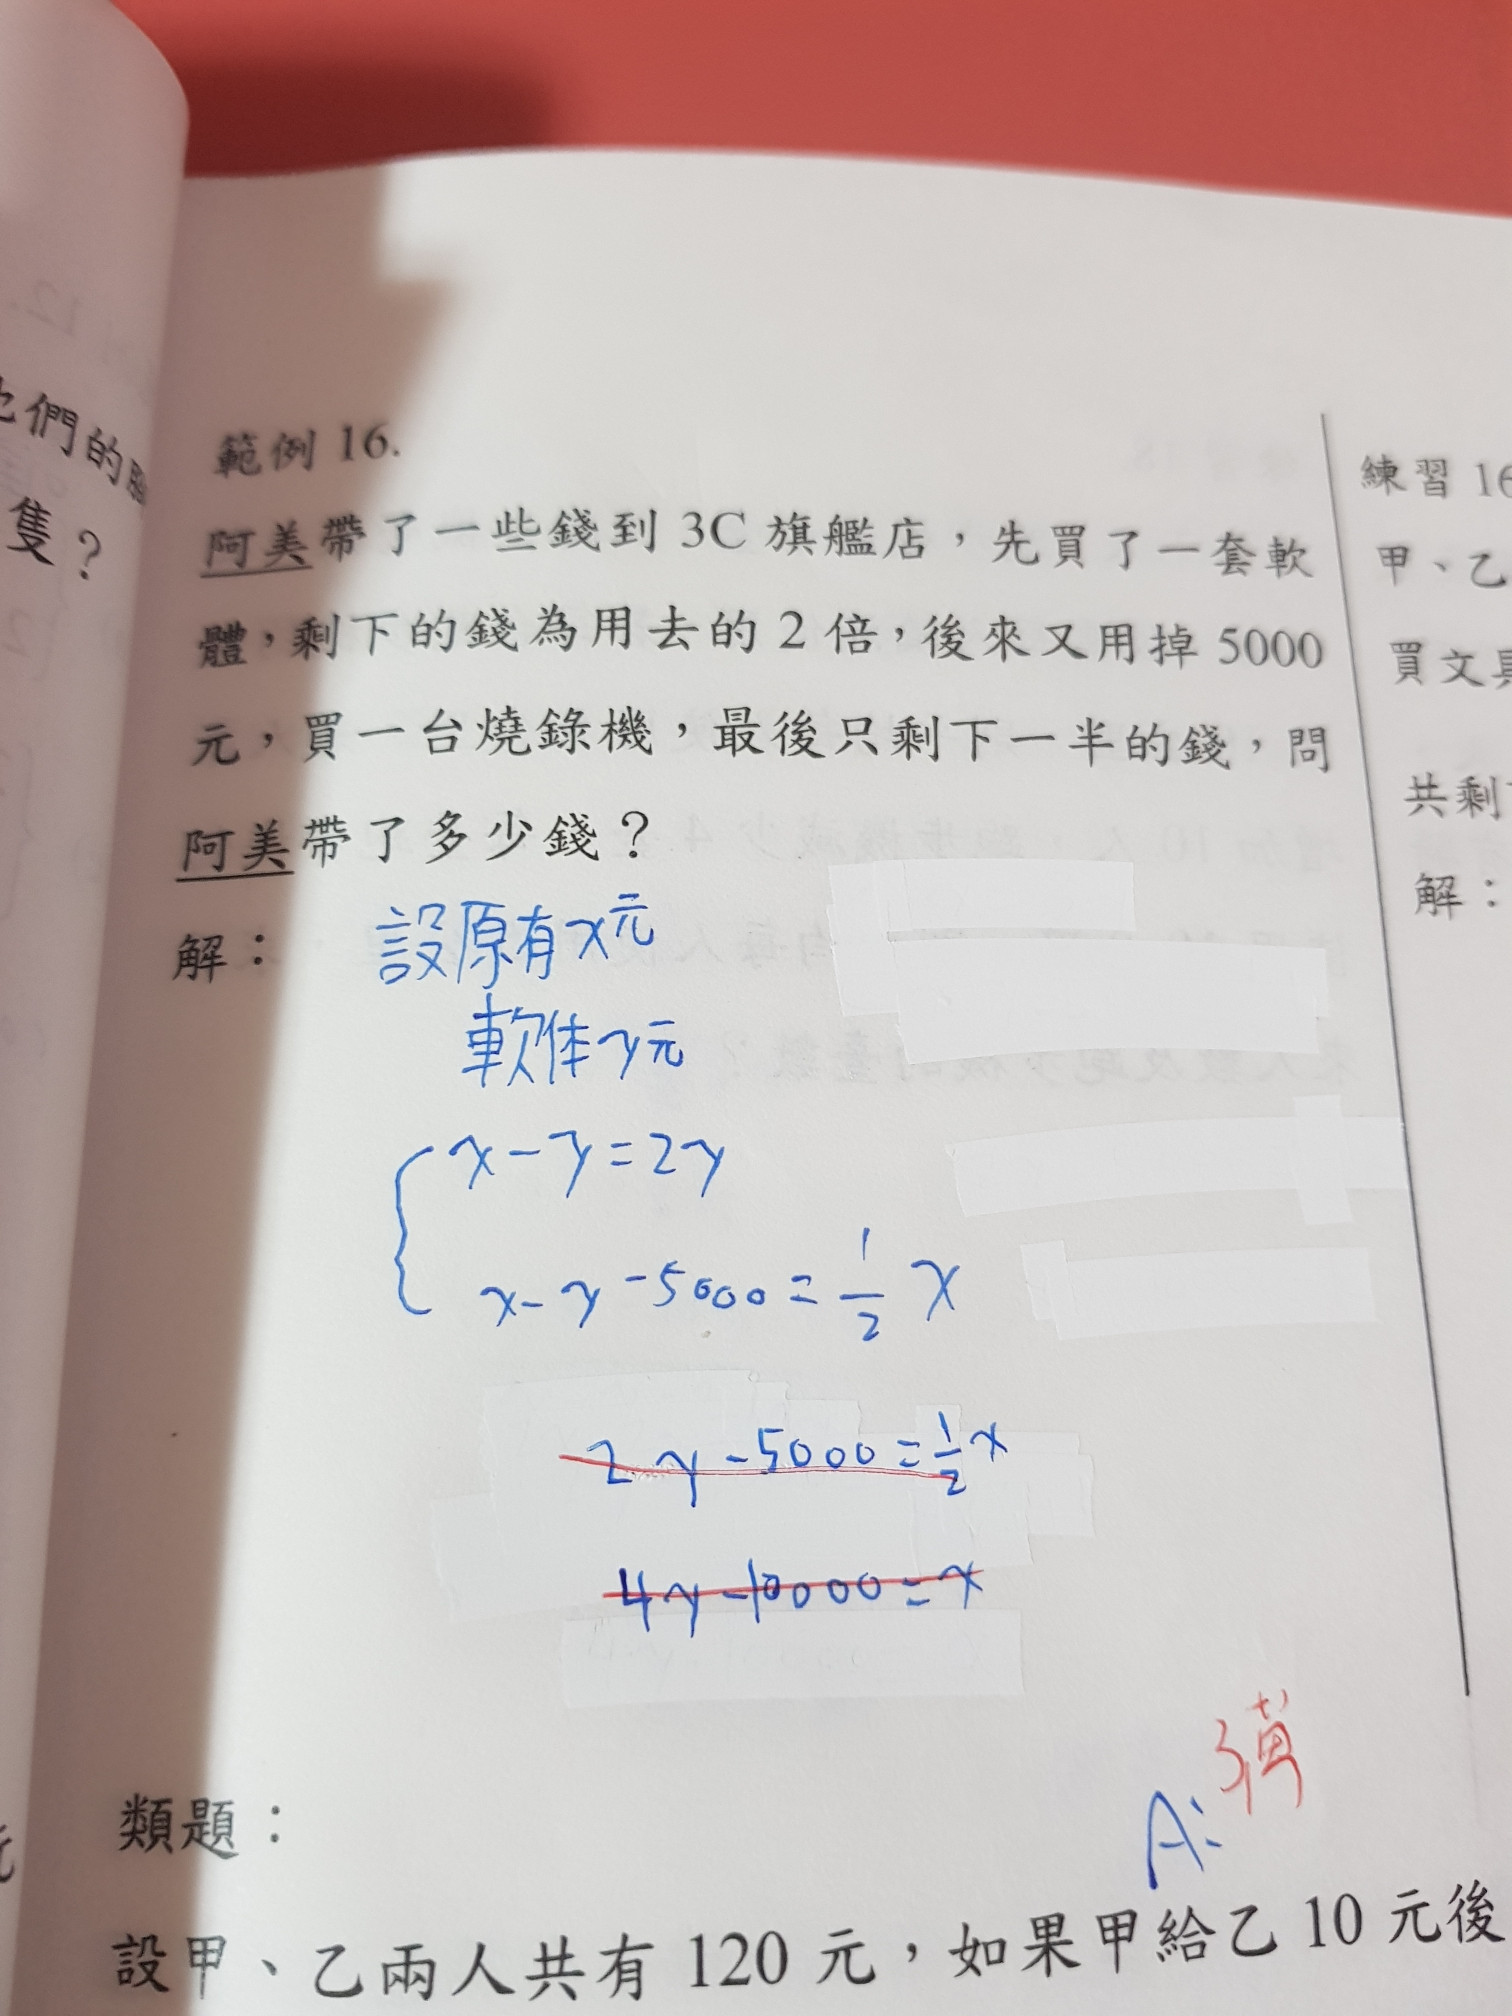 們的
隻？
範例 16.
阿美帶了一些錢到 3C 旗艦店，先買了一套軟
體，剩下的錢為用去的 2 倍，後來又用掉 5000
元，買一台燒錄機，最後只剩下一半的錢，問
阿美帶了多少錢？
解： 設原有x元
軟体y元
x-y=2y
x-y-5000=1/2 x
2y-5000=1/2 x
4y-10000=x
A:
類題：
設甲、乙兩人共有 120 元，如果甲給乙 10 元後
練習 16
甲、乙
買文具
共剩
解：